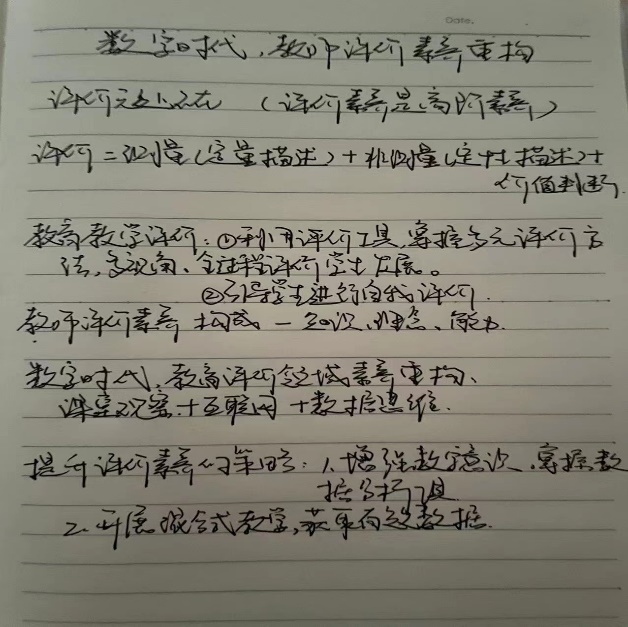 Date.
数字时代,教师评价素养重构
评价无处不在 (评价素养是高阶素养)
评价=测量(定量描述)+非测量(定性描述)+
价值判断.
教育教学评价:①利用评价工具,掌握多元评价方
法,多视角、全过程评价学生发展。
②引导学生进行自我评价.
教师评价素养构成—知识、理念、能力.
数字时代,教育评价领域素养重构、
课堂观察+互联网+数据思维.
提升评价素养的策略:1.增强数字意识,掌握数
据分析工具
2.开展混合式教学,获取有效数据.